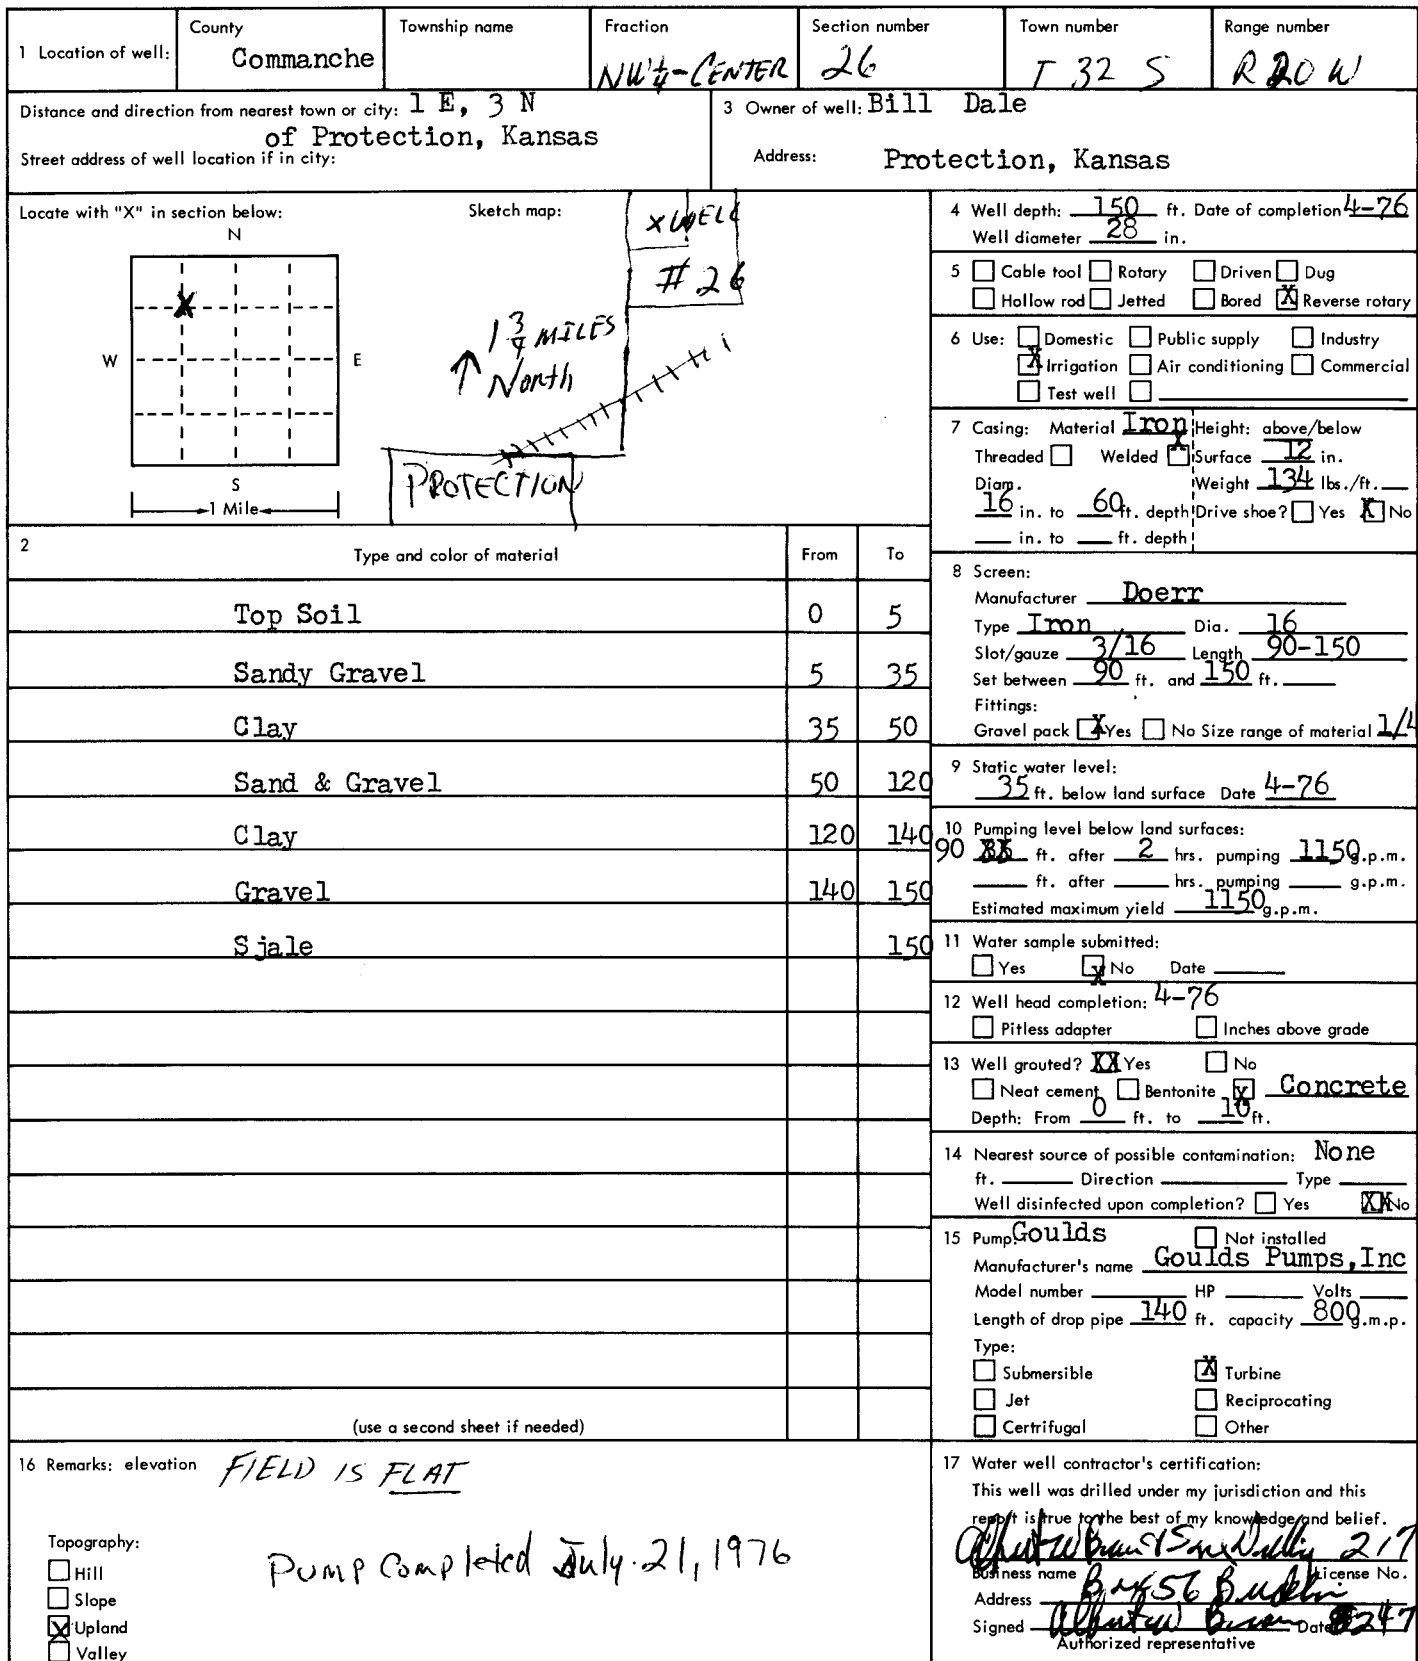 1 Location of well: County Commanche Township name Fraction NW¼-CENTER Section number 26 Town number T 32 S Range number R 20 W
Distance and direction from nearest town or city: 1 E, 3 N
of Protection, Kansas
Street address of well location if in city:
3 Owner of well: Bill Dale
Address: Protection, Kansas
Locate with "X" in section below:
N
W
E
S
1 Mile
X
Sketch map:
X WELL
# 26
1 3/4 MILES
North
PROTECTION
2 Type and color of material From To
Top Soil 0 5
Sandy Gravel 5 35
Clay 35 50
Sand & Gravel 50 120
Clay 120 140
Gravel 140 150
Sjale 150
(use a second sheet if needed)
4 Well depth: 150 ft. Date of completion 4-76
Well diameter 28 in.
5 Cable tool Rotary Driven Dug
Hollow rod Jetted Bored X Reverse rotary
6 Use: Domestic Public supply Industry
X Irrigation Air conditioning Commercial
Test well
7 Casing: Material Iron Height: above/below
Threaded Welded X Surface 12 in.
Diam. Weight 134 lbs./ft.
16 in. to 60 ft. depth Drive shoe? Yes X No
in. to ft. depth
8 Screen:
Manufacturer Doerr
Type Iron Dia. 16
Slot/gauze 3/16 Length 90-150
Set between 90 ft. and 150 ft.
Fittings:
Gravel pack X Yes No Size range of material 1/4
9 Static water level:
35 ft. below land surface Date 4-76
10 Pumping level below land surfaces:
90 ft. after 2 hrs. pumping 1150 g.p.m.
ft. after hrs. pumping g.p.m.
Estimated maximum yield 1150 g.p.m.
11 Water sample submitted:
Yes X No Date
12 Well head completion: 4-76
Pitless adapter Inches above grade
13 Well grouted? XX Yes No
Neat cement Bentonite X Concrete
Depth: From 0 ft. to 10 ft.
14 Nearest source of possible contamination: None
ft. Direction Type
Well disinfected upon completion? Yes XX No
15 Pump: Goulds Not installed
Manufacturer's name Goulds Pumps, Inc
Model number HP Volts
Length of drop pipe 140 ft. capacity 800 g.m.p.
Type:
Submersible X Turbine
Jet Reciprocating
Certrifugal Other
16 Remarks: elevation FIELD IS FLAT
Topography:
Hill
Slope
X Upland
Valley
Pump Completed July 21, 1976
17 Water well contractor's certification:
This well was drilled under my jurisdiction and this
report is true to the best of my knowledge and belief.
217
Business name License No.
Address Box 56
Signed Date
Authorized representative